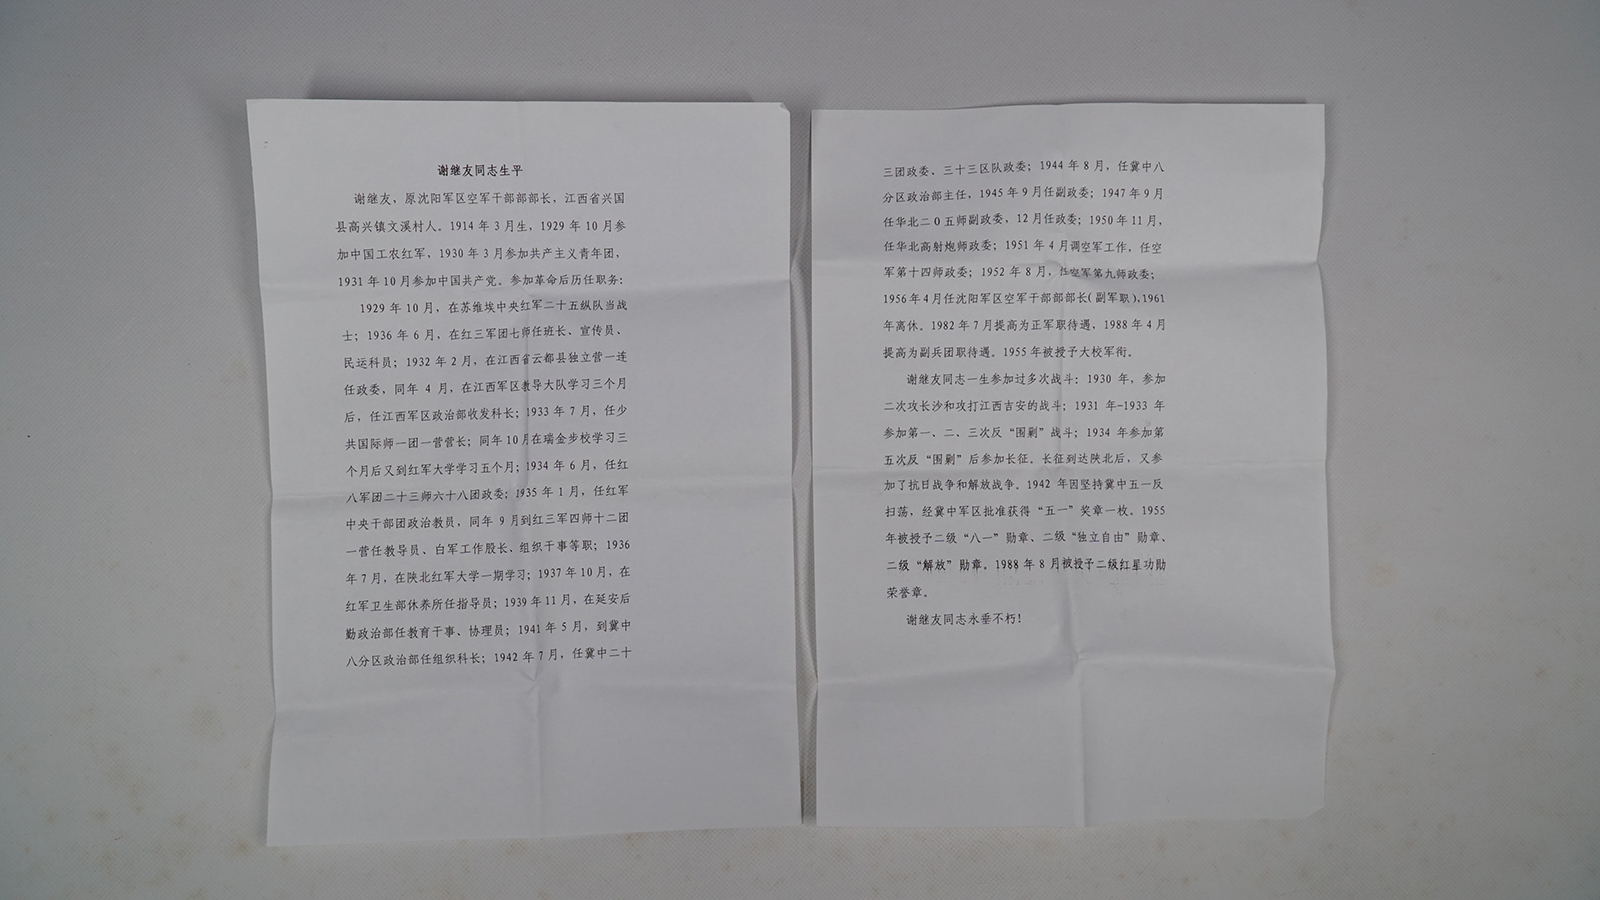 谢继友同志生平
谢继友，原沈阳军区空军干部部部长，江西省兴国
县高兴镇文溪村人。1914 年 3 月生，1929 年 10 月参
加中国工农红军，1930 年 3 月参加共产主义青年团，
1931 年 10 月参加中国共产党。参加革命后历任职务：
1929 年 10 月，在苏维埃中央红军二十五纵队当战
士；1936 年 6 月，在红三军团七师任班长、宣传员、
民运科员；1932 年 2 月，在江西省云都县独立营一连
任政委，同年 4 月，在江西军区教导大队学习三个月
后，任江西军区政治部收发科长；1933 年 7 月，任少
共国际师一团一营营长；同年 10 月在瑞金步校学习三
个月后又到红军大学学习五个月；1934 年 6 月，任红
八军团二十三师六十八团政委；1935 年 1 月，任红军
中央干部团政治教员，同年 9 月到红三军四师十二团
一营任教导员、白军工作股长、组织干事等职；1936
年 7 月，在陕北红军大学一期学习；1937 年 10 月，在
红军卫生部休养所任指导员；1939 年 11 月，在延安后
勤政治部任教育干事、协理员；1941 年 5 月，到冀中
八分区政治部任组织科长；1942 年 7 月，任冀中二十
三团政委、三十三区队政委；1944 年 8 月，任冀中八
分区政治部主任，1945 年 9 月任副政委；1947 年 9 月
任华北二０五师副政委，12 月任政委；1950 年 11 月，
任华北高射炮师政委；1951 年 4 月调空军工作，任空
军第十四师政委；1952 年 8 月，任空军第九师政委；
1956 年 4 月任沈阳军区空军干部部部长（副军职），1961
年离休。1982 年 7 月提高为正军职待遇，1988 年 4 月
提高为副兵团职待遇。1955 年被授予大校军衔。
谢继友同志一生参加过多次战斗：1930 年，参加
二次攻长沙和攻打江西吉安的战斗；1931 年-1933 年
参加第一、二、三次反“围剿”战斗；1934 年参加第
五次反“围剿”后参加长征。长征到达陕北后，又参
加了抗日战争和解放战争。1942 年因坚持冀中五一反
扫荡，经冀中军区批准获得“五一”奖章一枚。1955
年被授予二级“八一”勋章、二级“独立自由”勋章、
二级“解放”勋章。1988 年 8 月被授予二级红星功勋
荣誉章。
谢继友同志永垂不朽！